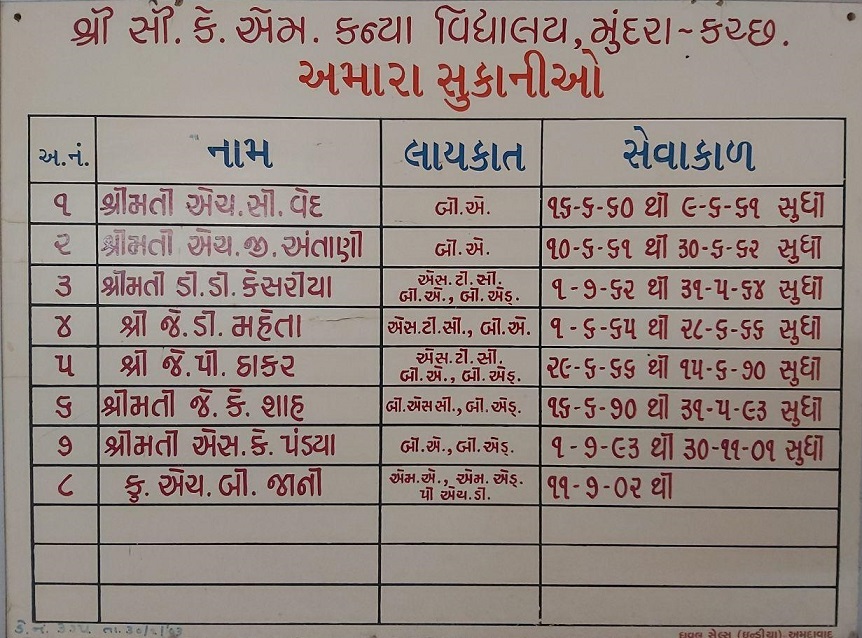 શ્રી સી. કે. એમ. કન્યા વિદ્યાલય, મુંદરા~કચ્છ.
અમારા સુકાનીઓ
અ.નં. નામ લાયકાત સેવાકાળ
૧ શ્રીમતી એચ.સી. વેદ બી.એ. ૧૬-૬-૬૦ થી ૯-૬-૬૧ સુધી
૨ શ્રીમતી એચ.જી.અંતાણી બી.એ. ૧૦-૬-૬૧ થી ૩૦-૬-૬૨ સુધી
૩ શ્રીમતી ડી.ડી. કેસરીયા એસ.ટી.સી. બી.એ., બી.એડ્. ૧-૭-૬૨ થી ૩૧-૫-૬૪ સુધી
૪ શ્રી જે.ડી. મહેતા એસ.ટી.સી., બી.એ. ૧-૬-૬૫ થી ૨૮-૬-૬૬ સુધી
૫ શ્રી જે.પી. ઠાકર એસ.ટી.સી. બી.એ., બી.એડ્. ૨૯-૬-૬૬ થી ૧૫-૬-૭૦ સુધી
૬ શ્રીમતી જે. કે. શાહ બી.એસસી., બી.એડ્. ૧૬-૬-૭૦ થી ૩૧-૫-૯૩ સુધી
૭ શ્રીમતી એસ.કે. પંડ્યા બી.એ., બી.એડ્. ૧-૭-૯૩ થી ૩૦-૧૧-૦૧ સુધી
૮ કુ. એચ. બી. જાની એમ.એ., એમ.એડ્. પી એચ.ડી. ૧૧-૭-૦૨ થી
દાવલ સેલ્સ (ઇન્ડીયા). અમદાવાદ